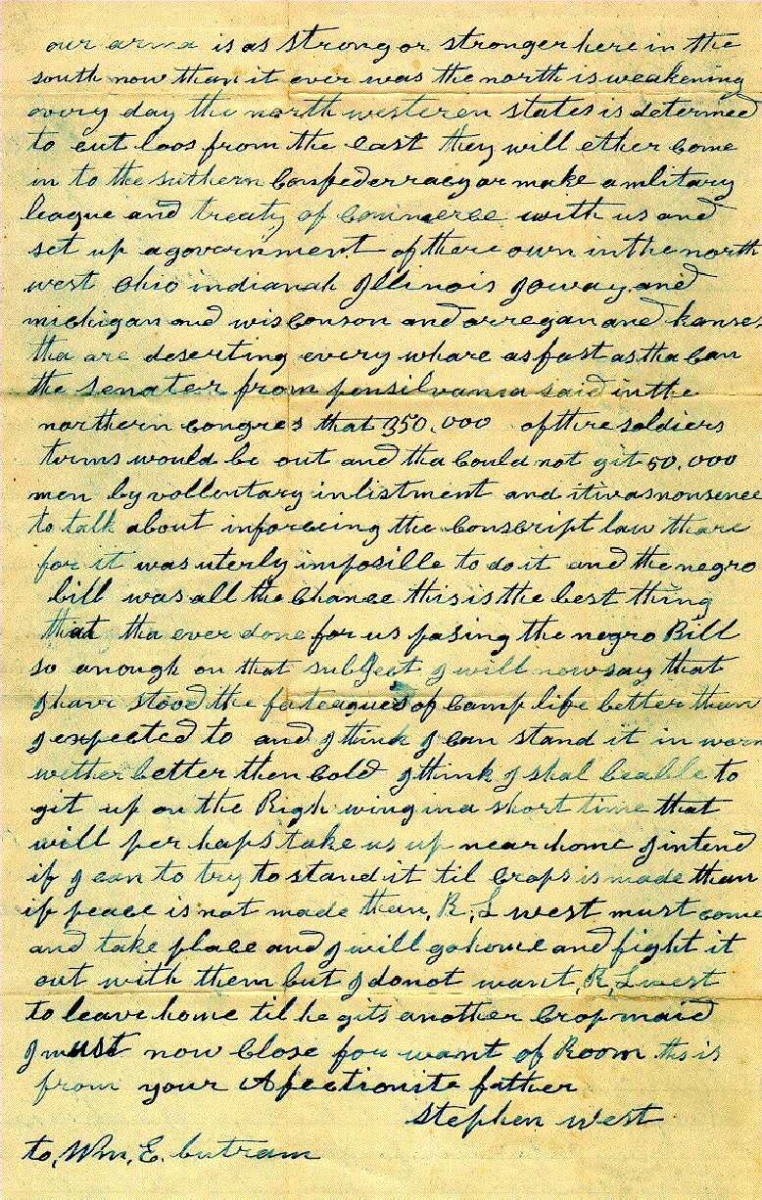 our arma is as strong or stronger here in the
south now than it ever was the north is weakening
every day the north western states is determed
to cut loos from the east they will ether come
in to the suthern Confederracy or make a military
league and treaty of Commerce with us and
set up a government of there own in the north
west Ohio indianah Illinois Joway and
michigan and wisconson and orregan and kanses
tha are deserting every whare as fast as tha Can
the senater from pensilvana said in the
northern congres that 350,000 of thre soldiers
terms would be out and tha Could not git 50,000
men by vollentary inlistment and it was nonsence
to talk about inforceing the Conscript law thare
for it was uterly imposille to do it and the negro
bill was all the Chance this is the best thing
that tha ever done for us pasing the negro Bill
so anough on that subject I will now say that
I have stood the fateagues of Camp life better than
I expected to and I think I Can stand it in worm
wether better then Cold I think I shal be able to
git up on the Righ wing in a short time that
will per haps take us up near home I intend
if I can to try to stand it til Crops is made than
if peace is not made than, R, L west must come
and take place and I will go home and fight it
out with them but I do not want, R, L west
to leave home til he gits another Crop maid
I must now Close for want of Room ths is
from your Afectionite father
Stephen West
to, Wm, E. Cutram